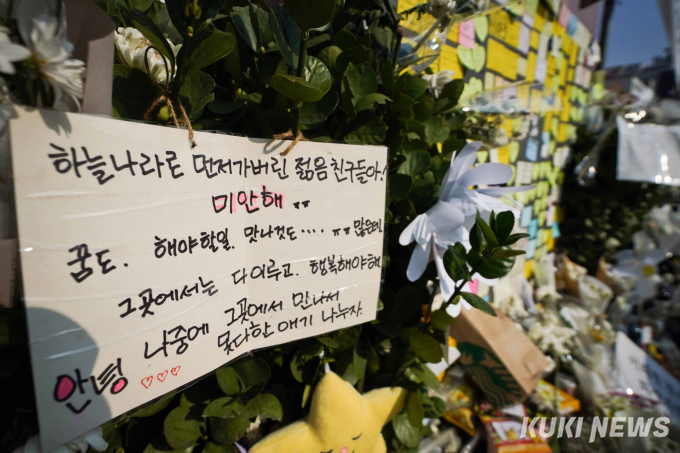 하늘나라로 먼저가버린 젊음 친구들아!
미안해 ㅠㅠ
꿈도. 해야할일. 맛나것도···· ㅠㅠ 많은데
그곳에서는 다이루고. 행복해야해
나중에 그곳에서 만나서
못다한 얘기 나누자.
안녕
KUKI NEWS